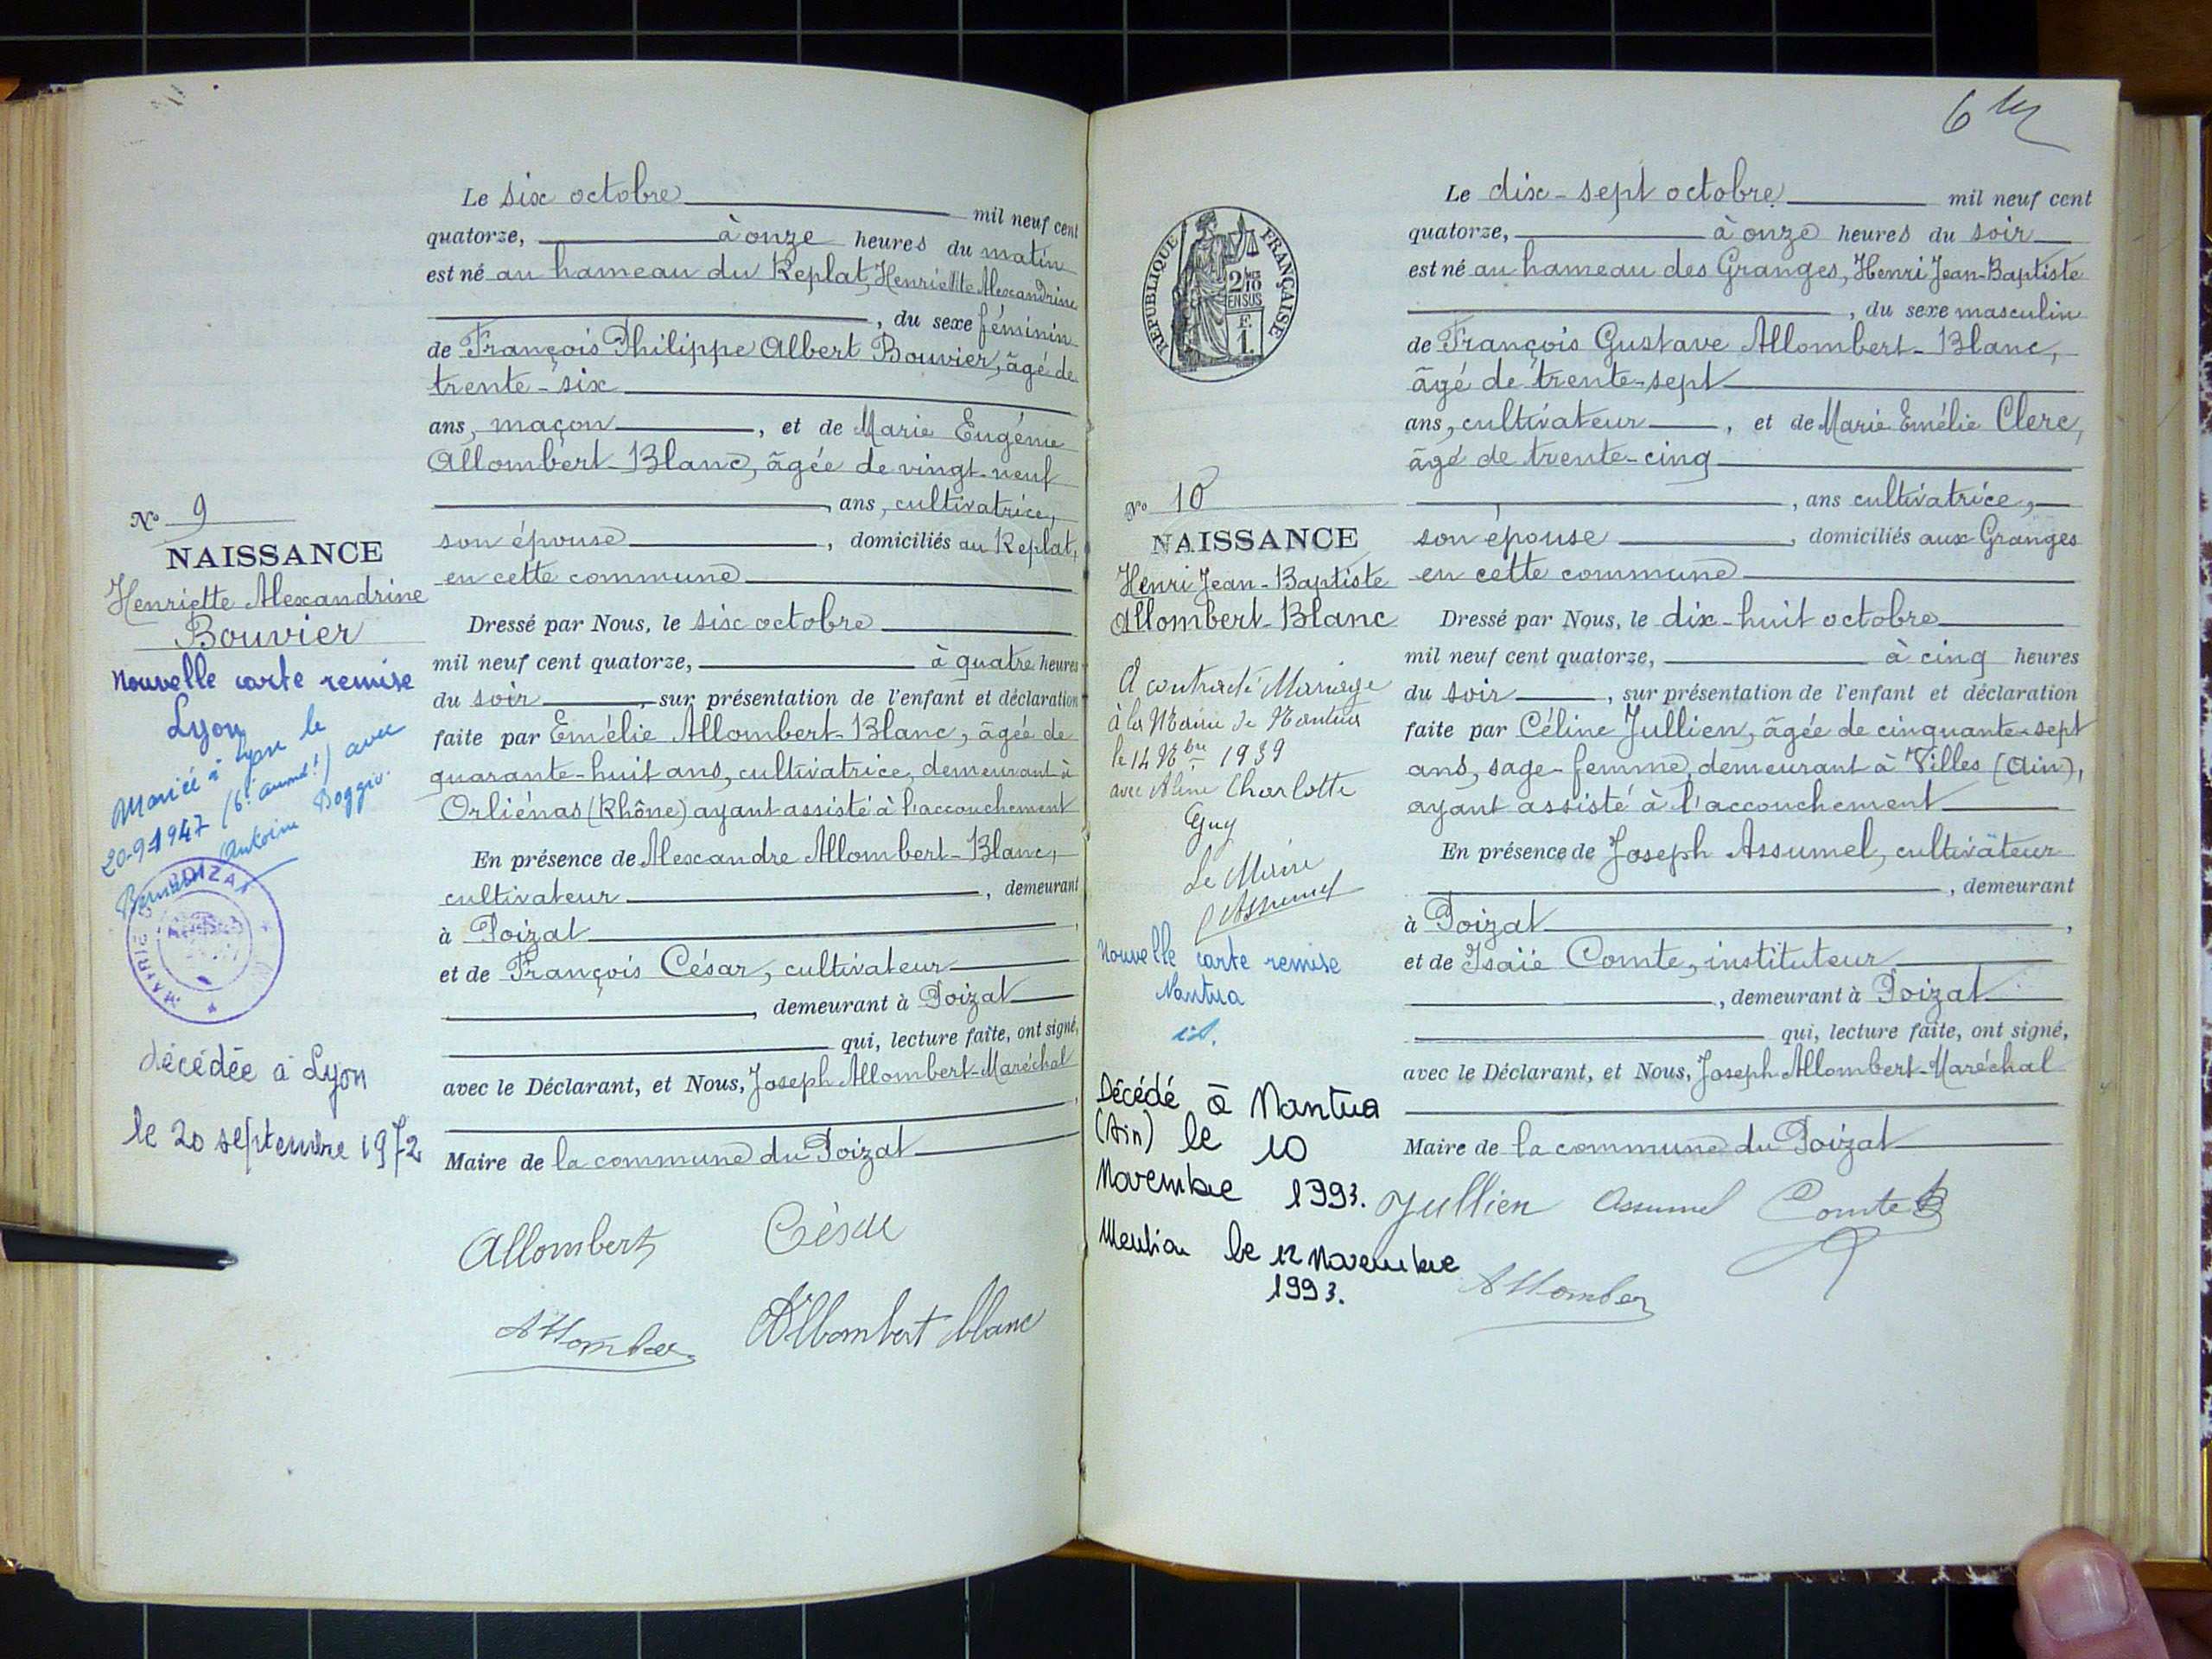 Le six octobre mil neuf cent
quatorze, à onze heures du matin
est né au hameau du Replat, Henriette Alexandrine
, du sexe féminin
de François Philippe Albert Bouvier, âgé de
trente-six
ans, maçon, et de Marie Eugénie
Allombert-Blanc, âgée de vingt-neuf
ans, cultivatrice,
son épouse, domiciliés au Replat,
en cette commune
Dressé par Nous, le six octobre
mil neuf cent quatorze, à quatre heures
du soir, sur présentation de l'enfant et déclaration
faite par Emélie Allombert-Blanc, âgée de
quarante-huit ans, cultivatrice, demeurant à
Orliénas (Rhône) ayant assisté à l'accouchement
En présence de Alexandre Allombert-Blanc,
cultivateur, demeurant
à Poizat,
et de François César, cultivateur
, demeurant à Poizat
qui, lecture faite, ont signé,
avec le Déclarant, et Nous, Joseph Allombert-Maréchal
,
Maire de la commune du Poizat
Allombert César
Allombert Allombert blanc
No 9
NAISSANCE
Henriette Alexandrine
Bouvier
Nouvelle carte remise
Lyon
Mariée à Lyon le
20-9-1947 (6e arrondt) avec
Antoine Boggio.
MAIRIE POIZAT
décédée à Lyon
le 20 septembre 1972
6
RÉPUBLIQUE FRANÇAISE
2/10
EN SUS
F.
1.
Le dix-sept octobre mil neuf cent
quatorze, à onze heures du soir
est né au hameau des Granges, Henri Jean-Baptiste
, du sexe masculin
de François Gustave Allombert-Blanc,
âgé de trente-sept
ans, cultivateur, et de Marie Emélie Clerc,
âgé de trente-cinq
, ans cultivatrice,
son épouse, domiciliés aux Granges
en cette commune
Dressé par Nous, le dix-huit octobre
mil neuf cent quatorze, à cinq heures
du soir, sur présentation de l'enfant et déclaration
faite par Céline Jullien, âgée de cinquante-sept
ans, sage-femme, demeurant à Villes (Ain),
ayant assisté à l'accouchement
En présence de Joseph Assumel, cultivateur
, demeurant
à Poizat,
et de Isaïe Comte, instituteur
, demeurant à Poizat
qui, lecture faite, ont signé,
avec le Déclarant, et Nous, Joseph Allombert-Maréchal
Maire de la commune du Poizat
Jullien Assumel Comte
Allombert
No 10
NAISSANCE
Henri Jean-Baptiste
Allombert-Blanc
A contracté Mariage
à la Mairie de Nantua
le 14 Xbre 1939
avec Aline Charlotte
Guy
Le Maire
Assumel
Nouvelle carte remise
Nantua
Décédé à Nantua
(Ain) le 10
Novembre 1993.
Mention le 12 Novembre
1993.